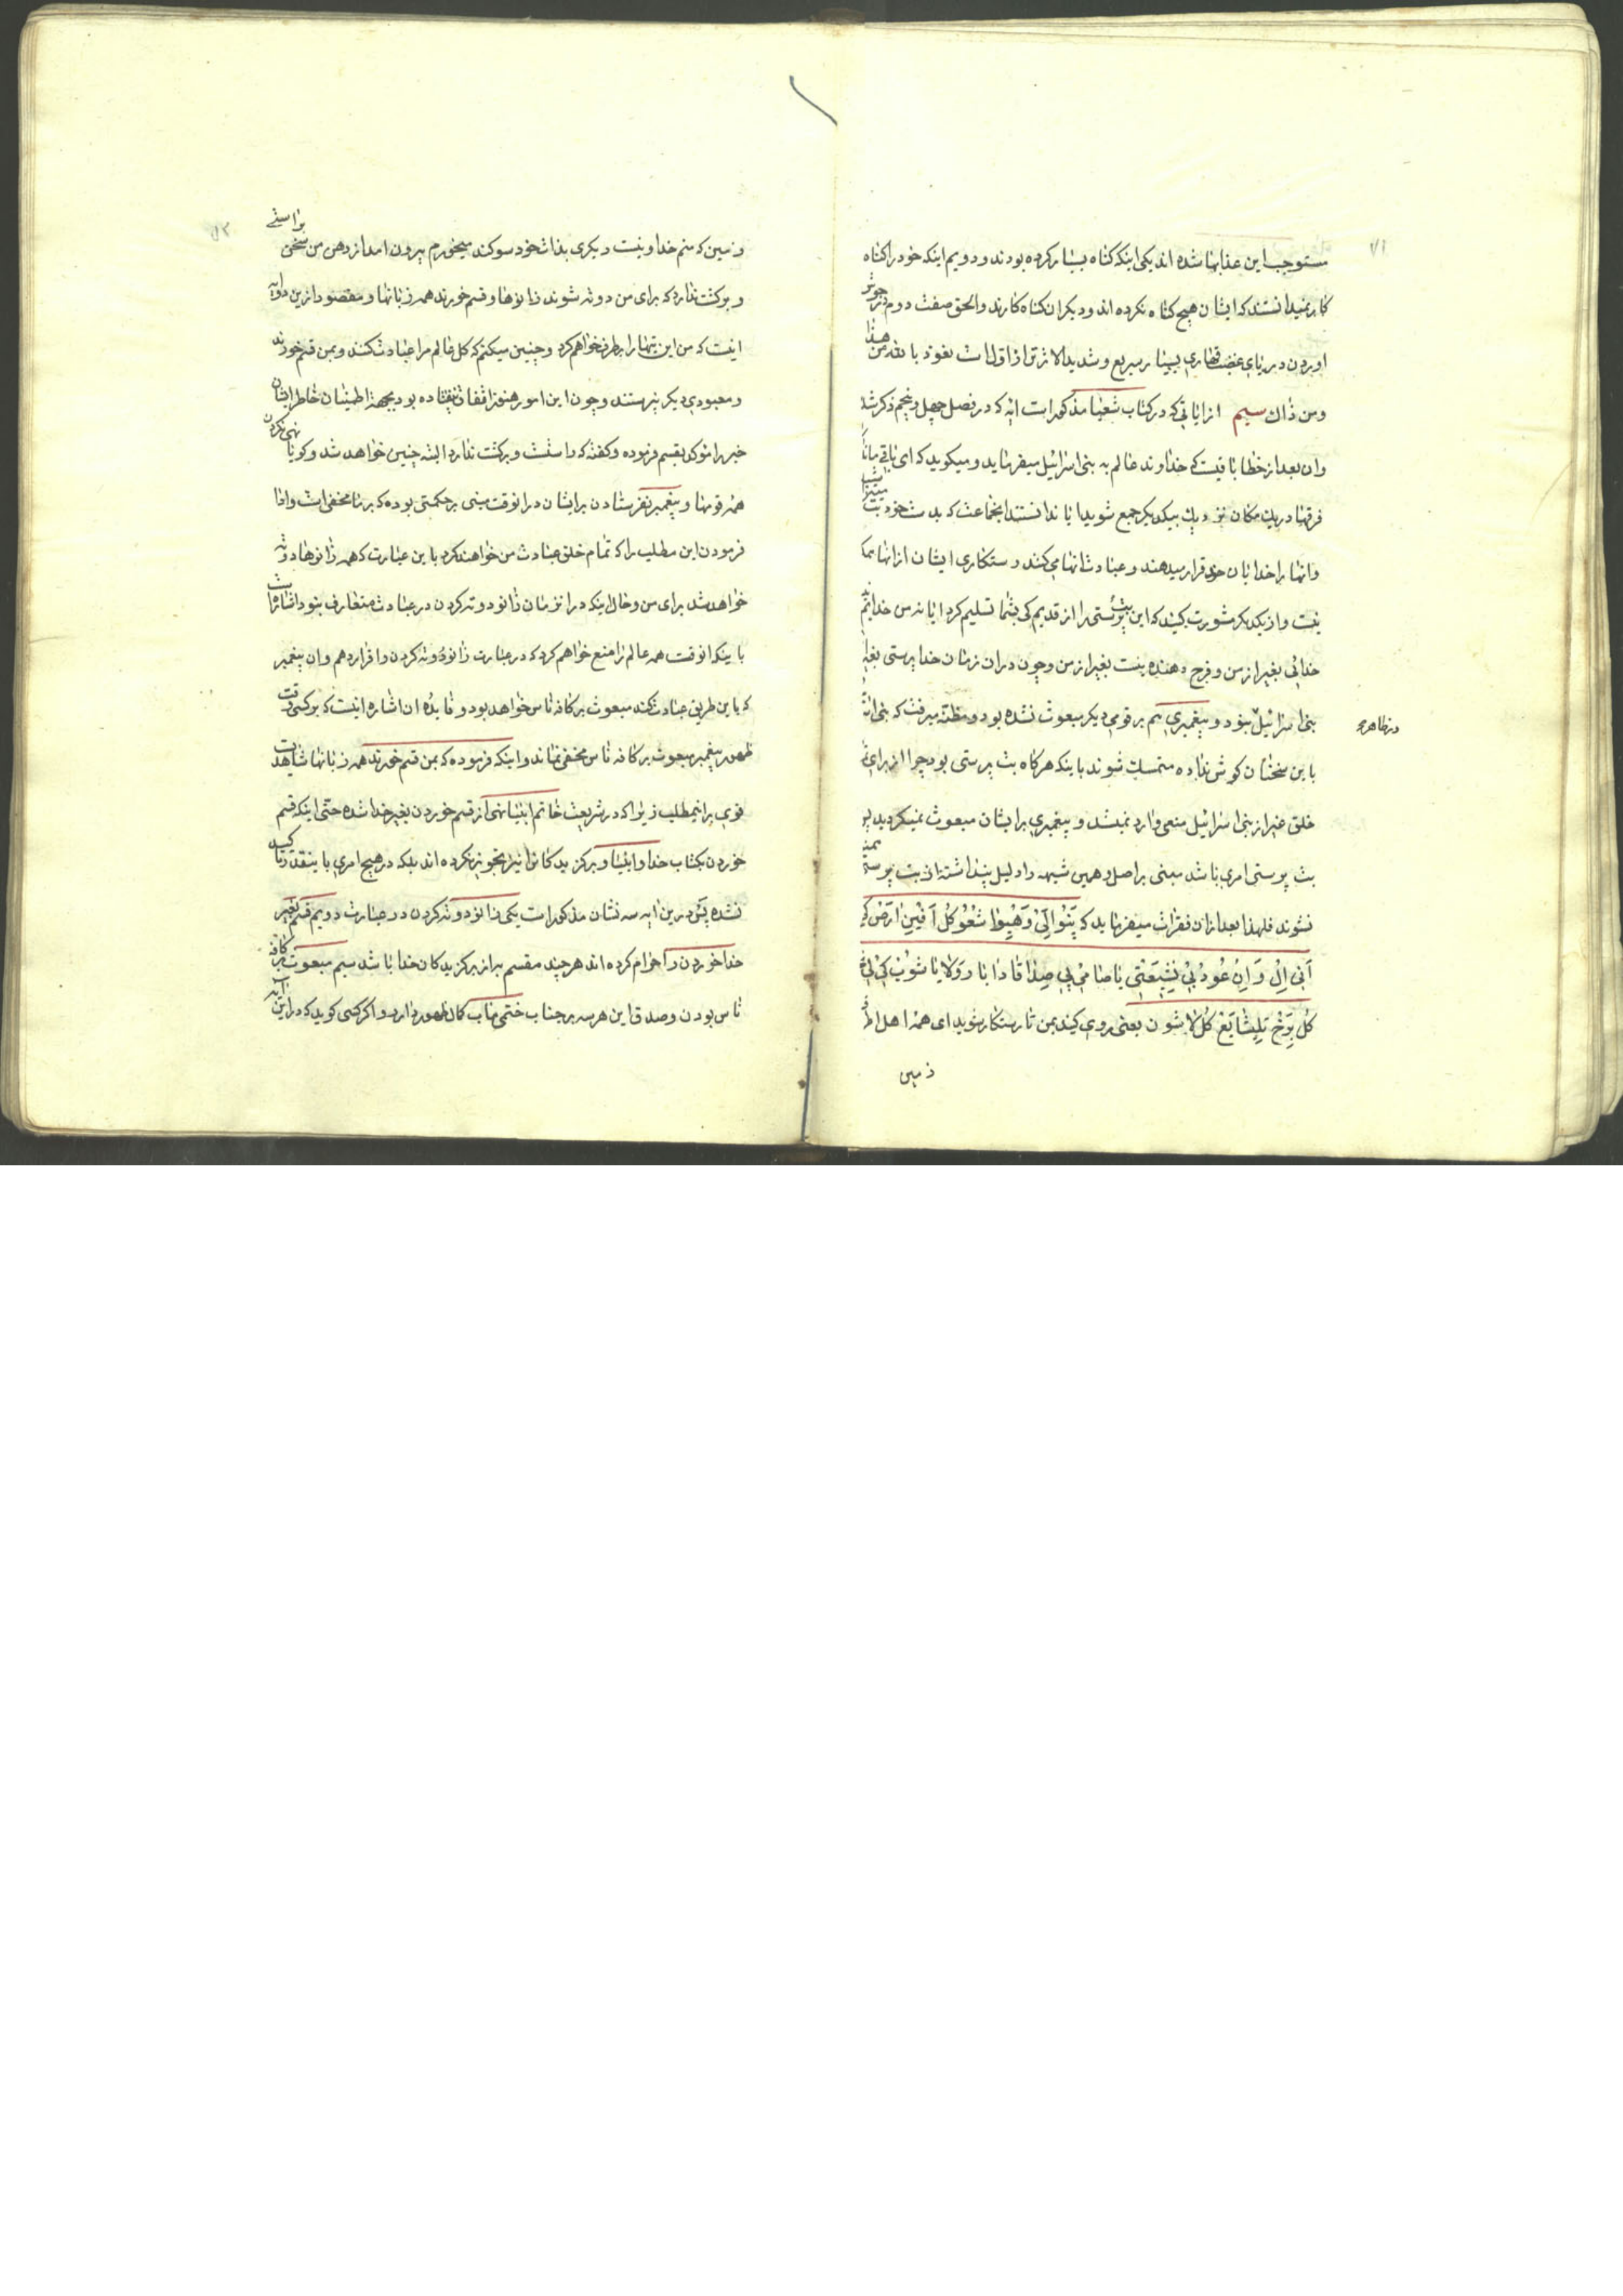 مستوجب این عذابها شده اند یکی اینکه کناه بسیار کرده بودند و دویم اینکه خود را کناه
کار نمیدانستند که ایشان هیچ کناه نکرده اند و دیکران کناه کارند والحق صفت دوم در جوش
اوردن دریای غضب قهاری بسیار سریع و شدید الاثر تر از اول است نعوذ بالله من هذا
ومن ذاك سیم از ایاتی که در کتاب شعیا مذکور است انه که در فصل چهل و پنجم ذکر شد
وان بعد از خطابا قیست که خداوند عالم به بنی اسرائیل میفرماید و میکوید که ای باقی
فرقها در یك مکان نزدیك بیکدیکر جمع شوید ایا ندانستند انجماعت که بدست خود بت
وانها را خدایان خود قرار میدهند و عبادت انها می کنند رستکاری ایشان از انها
نیست و از یکدیکر مشورت کنید که این بت پرستی را از قدیم کی بشما تسلیم کرد ایا نه من خدایم
خدائی بغیر از من و فرح دهنده نیست بغیر از من و چون در ان زمان خدا پرستی بغیر
بنی اسرائیل نبود و پیغمبری هم بر قومی دیکر مبعوث نشده بود و مظنه میرفت که بنی
در ظاهر
باین سخنان کوش نداده متمسك شوند باینکه هرکاه بت پرستی بود چرا از برای
خلق غیر از بنی اسرائیل منعی وارد نمیشد و پیغمبری برایشان مبعوث نمیکردید
بت پرستی امری باشد مبنی بر اصل و همین شبهه را دلیل پنداشته از بت پرستی
نشوند فلهذا بعد از ان فقرات میفرماید که پنوالی وهیوا شعو کل افیی ارض کی
انی ال و این عود بی نیشبعتی یاصا می پی صداقا دابار ولا یاشوب کی لی
کل برخ تیشابع کل لاشون یعنی روی کنید بمن تا رستکار شوید ای همه اهل اطراف
زمین
وزمین که منم خدا و نیست دیکری بذات خود سوکند میخورم بیرون امد از دهن من سخن براستی
و برکشت ندارد که برای من دوته شوند زانوها و قسم خورند همه زبانها و مقصود از این دو ایه
اینست که من این بتها را برطرف خواهم کرد و چنین میکنم که کل عالم مرا عبادت کنند و بمن قسم خورند
و معبودی دیکر نپرستند و چون این امور هنوز اتفاق نیفتاده بود بجهة اطمینان خاطر ایشان
خبر را موکد بقسم فرموده و کفته که راستست و برکشت ندارد البته چنین خواهد شد و کویا نهی نکردن
همه قومها و پیغمبر نفرستادن برایشان در انوقت مبنی بر حکمتی بوده که بر ما مخفی است و ادا
فرمودن این مطلب را که تمام خلق عبادت من خواهند کرد باین عبارت که همه زانوها دوته
خواهد شد برای من و حال اینکه در انزمان زانو دوته کردن در عبادت متعارف نبود اشارتست
باینکه انوقت همه عالم را منع خواهم کرد که در عبارت زانو دوته کردن را قرار دهم و ان پیغمبر
که باین طریق عبادت کند مبعوث بر کافه ناس خواهد بود و فایده ان اشاره اینست که بر کسی وقت
ظهور پیغمبر مبعوث بر کافه ناس مخفی نماند و اینکه فرموده که بمن قسم خورند همه زبانها شاهدیست
قوی بر اینمطلب زیرا که در شریعت خاتم انبیا نهی از قسم خوردن بغیر خدا شده حتی اینکه قسم
خوردن بکتاب خدا و انبیا و برکزیدکانرا نیز تجویز نکرده اند بلکه در هیچ امری باینقدر تاکید
نشده پس درین ایه سه نشان مذکور است یکی زانو دوته کردن در عبادت دویم قسم بغیر
خدا خوردن را حرام کرده اند هر چند مقسم به از برکزیدکان خدا باشد سیم مبعوث بر کافه
ناس بودن و صدق این هر سه بر جناب ختمی ماب کمال ظهور دارد و اکر کسی کوید که در این ایه